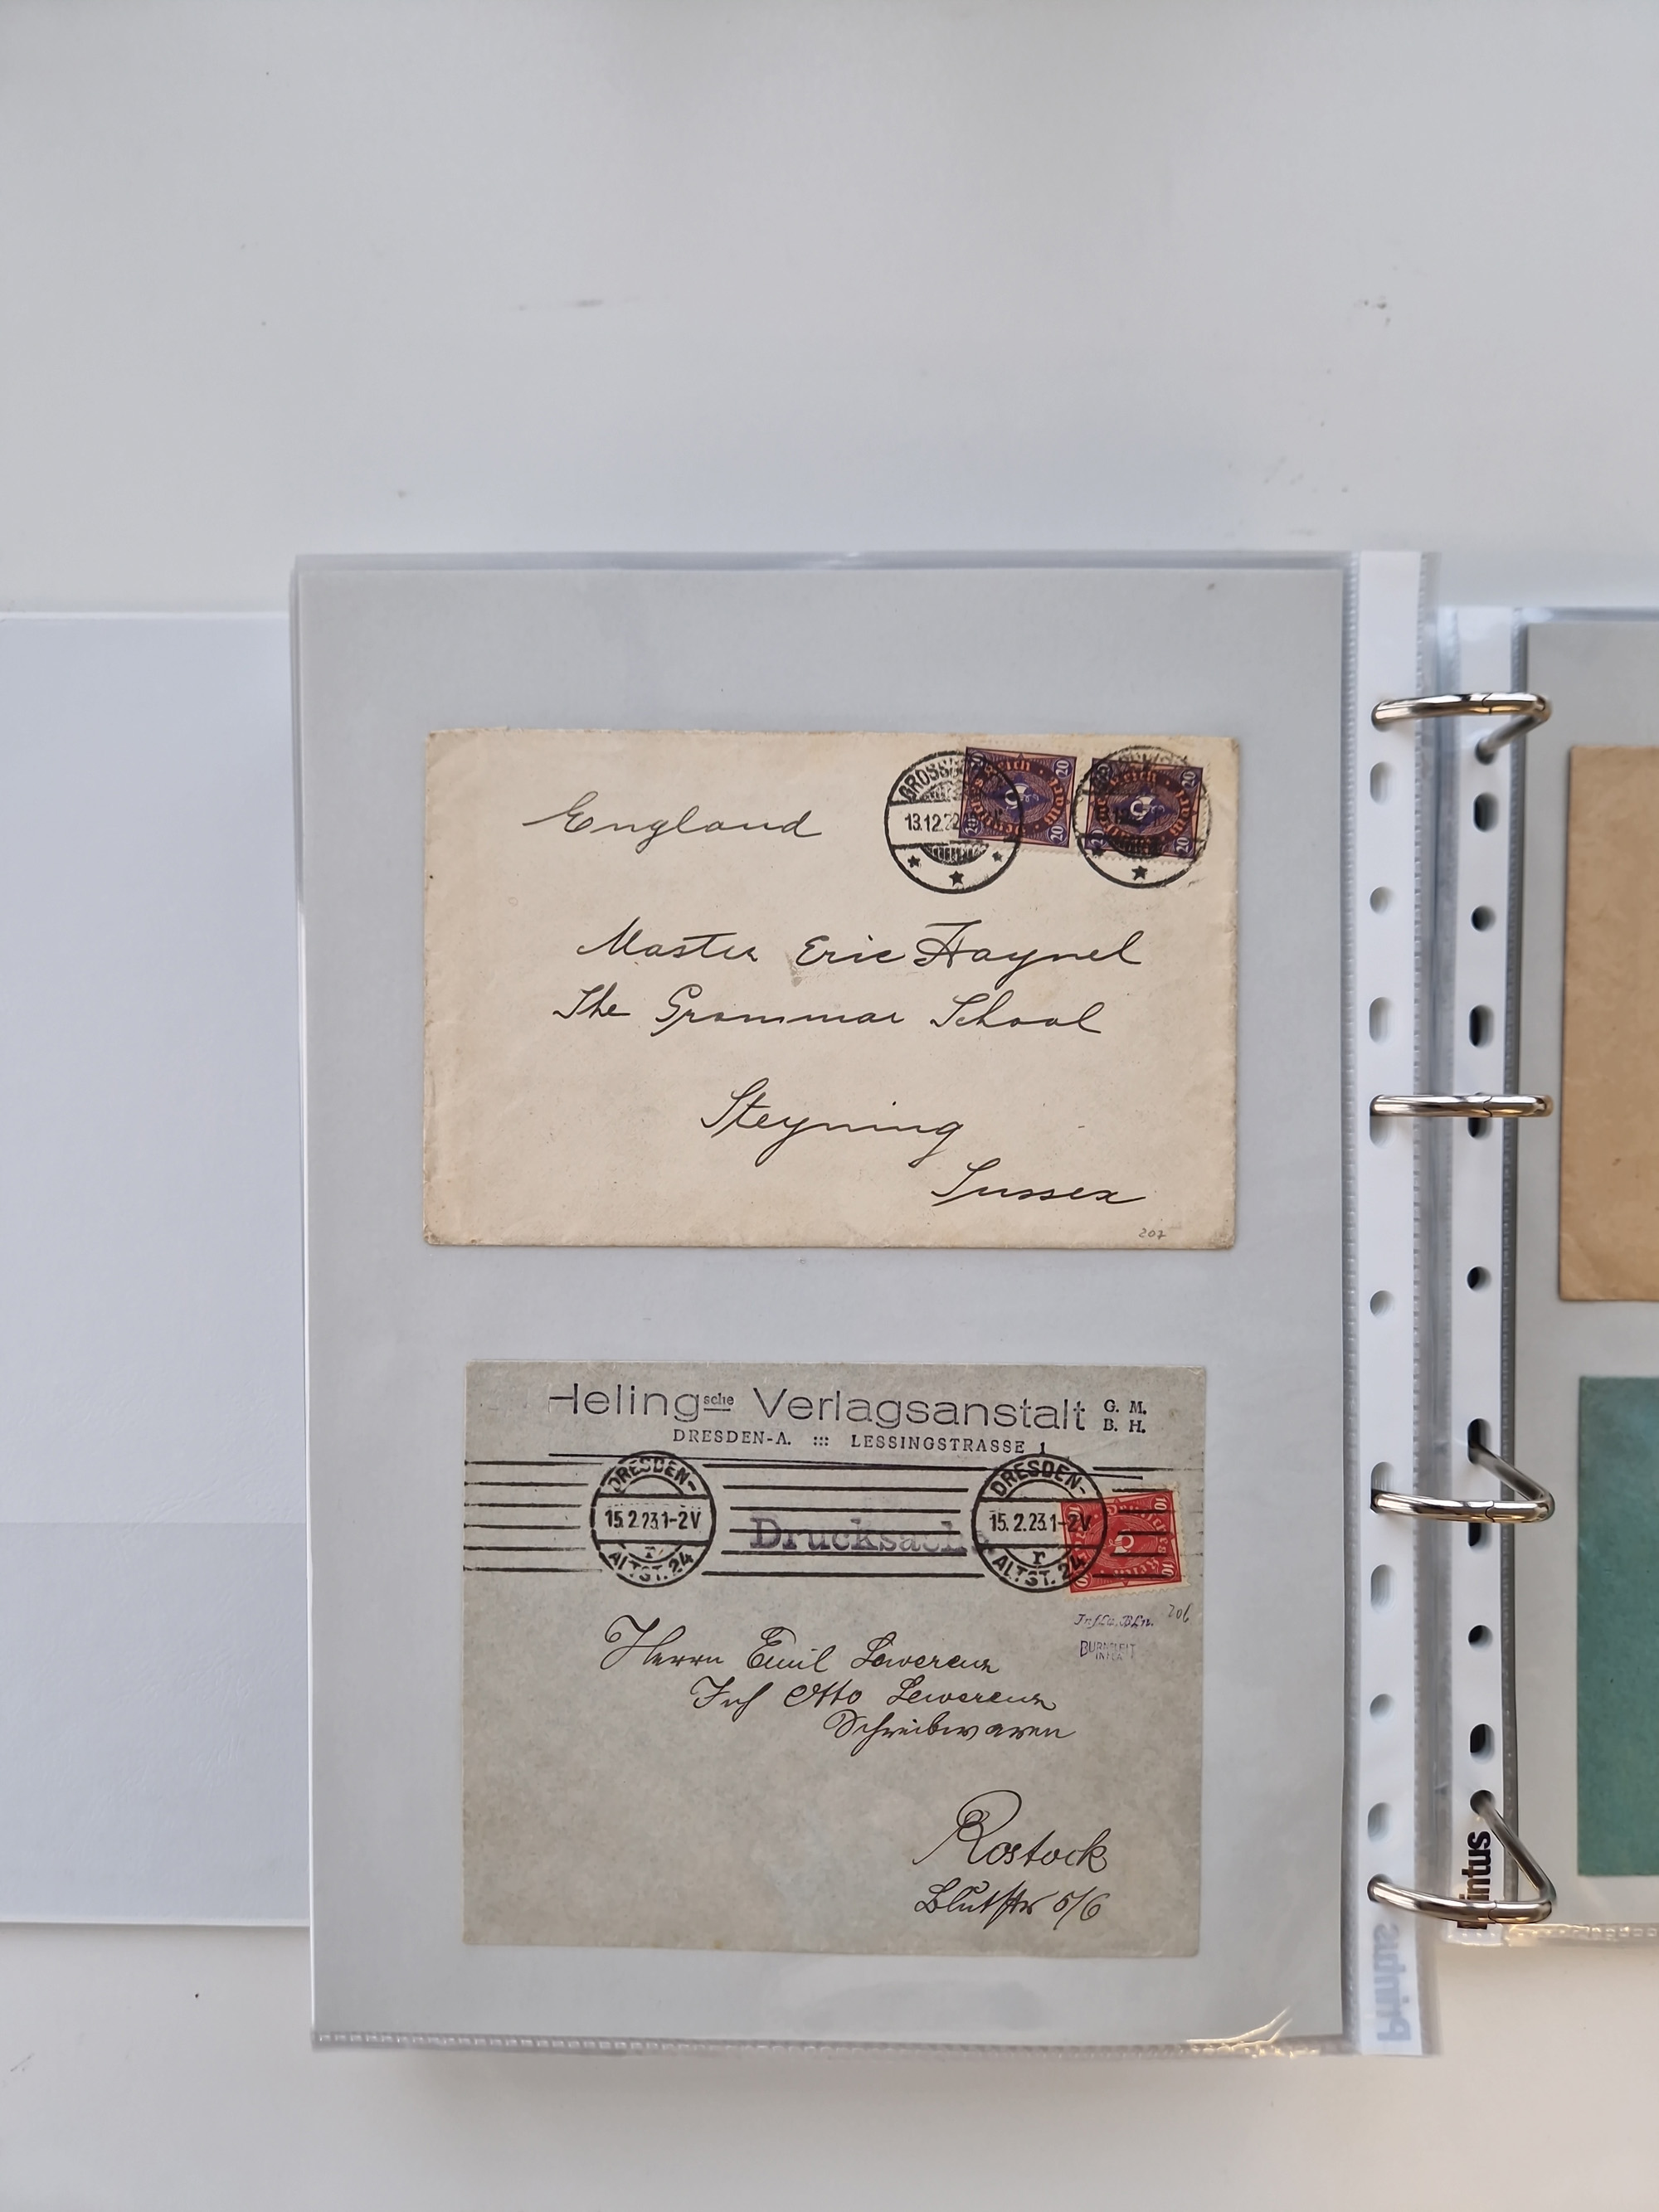 England
GROSS
13.12.22
20
20
20
20
20
20
Master Eric Haynel
The Grammar School
Steyning
Sussex
207
Heling sche Verlagsanstalt G. M. B. H.
DRESDEN-A. ::: LESSINGSTRASSE 1
DRESDEN-
15.2.23.1-2V
r
ALTST. 24
Drucksache
DRESDEN-
15.2.23.1-2V
r
ALTST. 24
10
10
10
Infla Bln. 206
BURNELEIT
INFLA
Herrn Emil Lewerenz
Inh Otto Lewerenz
Schreibwaren
Rostock
Blutstr 5/6
Printus
intus